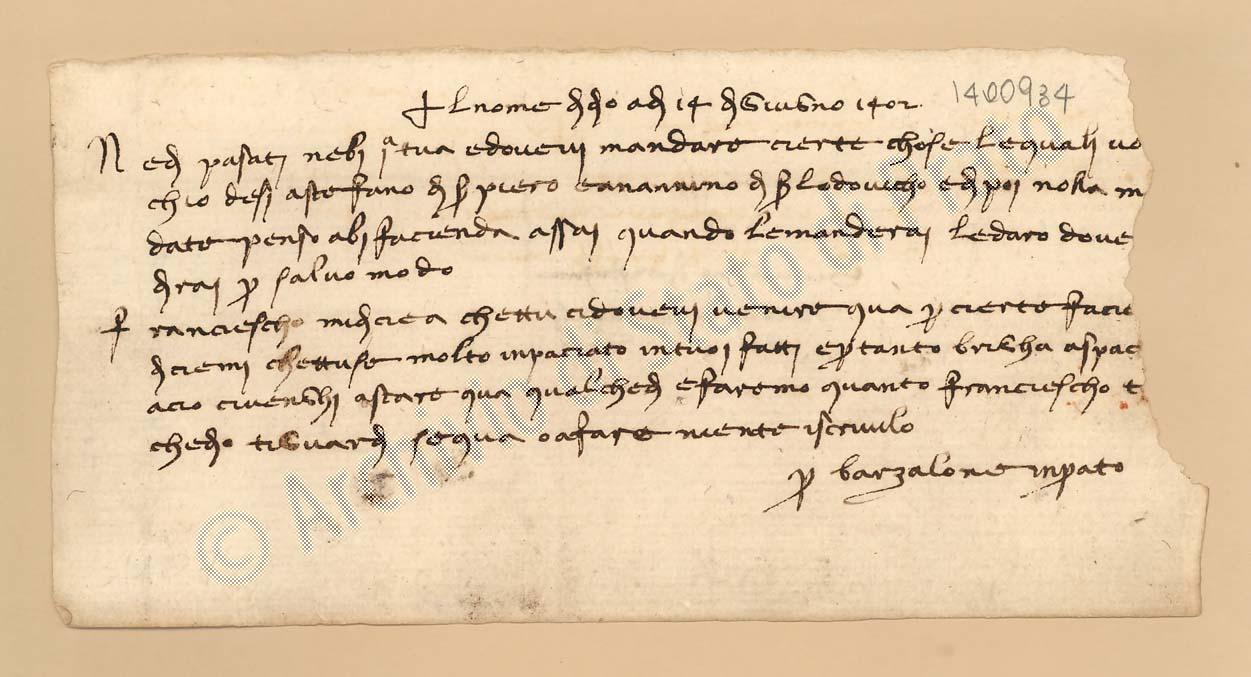 1400934
† l nome d dio ad 14 d giugno 1402
N e d pasati n ebi 1a tua e dovevi mandare cierte chose le quali vo
ch io desi a stefano d ser piero e a nannino d ser lodovicho e d poi no ll a m
date penso abi facienda assai quando le manderai le daro dove
drai p salvo modo
F ranciescho mi dciea che ttu ci dovevi venire qua p cierte facie
dciemi che ttu se molto inpaciato in tuoi fatti e p tanto brigha a spac
acio ci venghi a stare qua qualche d e faremo quanto franciescho t
che dio ti guardi se qua o a fare niente iscrivilo
p barzalone in prato
© Archivio di Stato di Prato